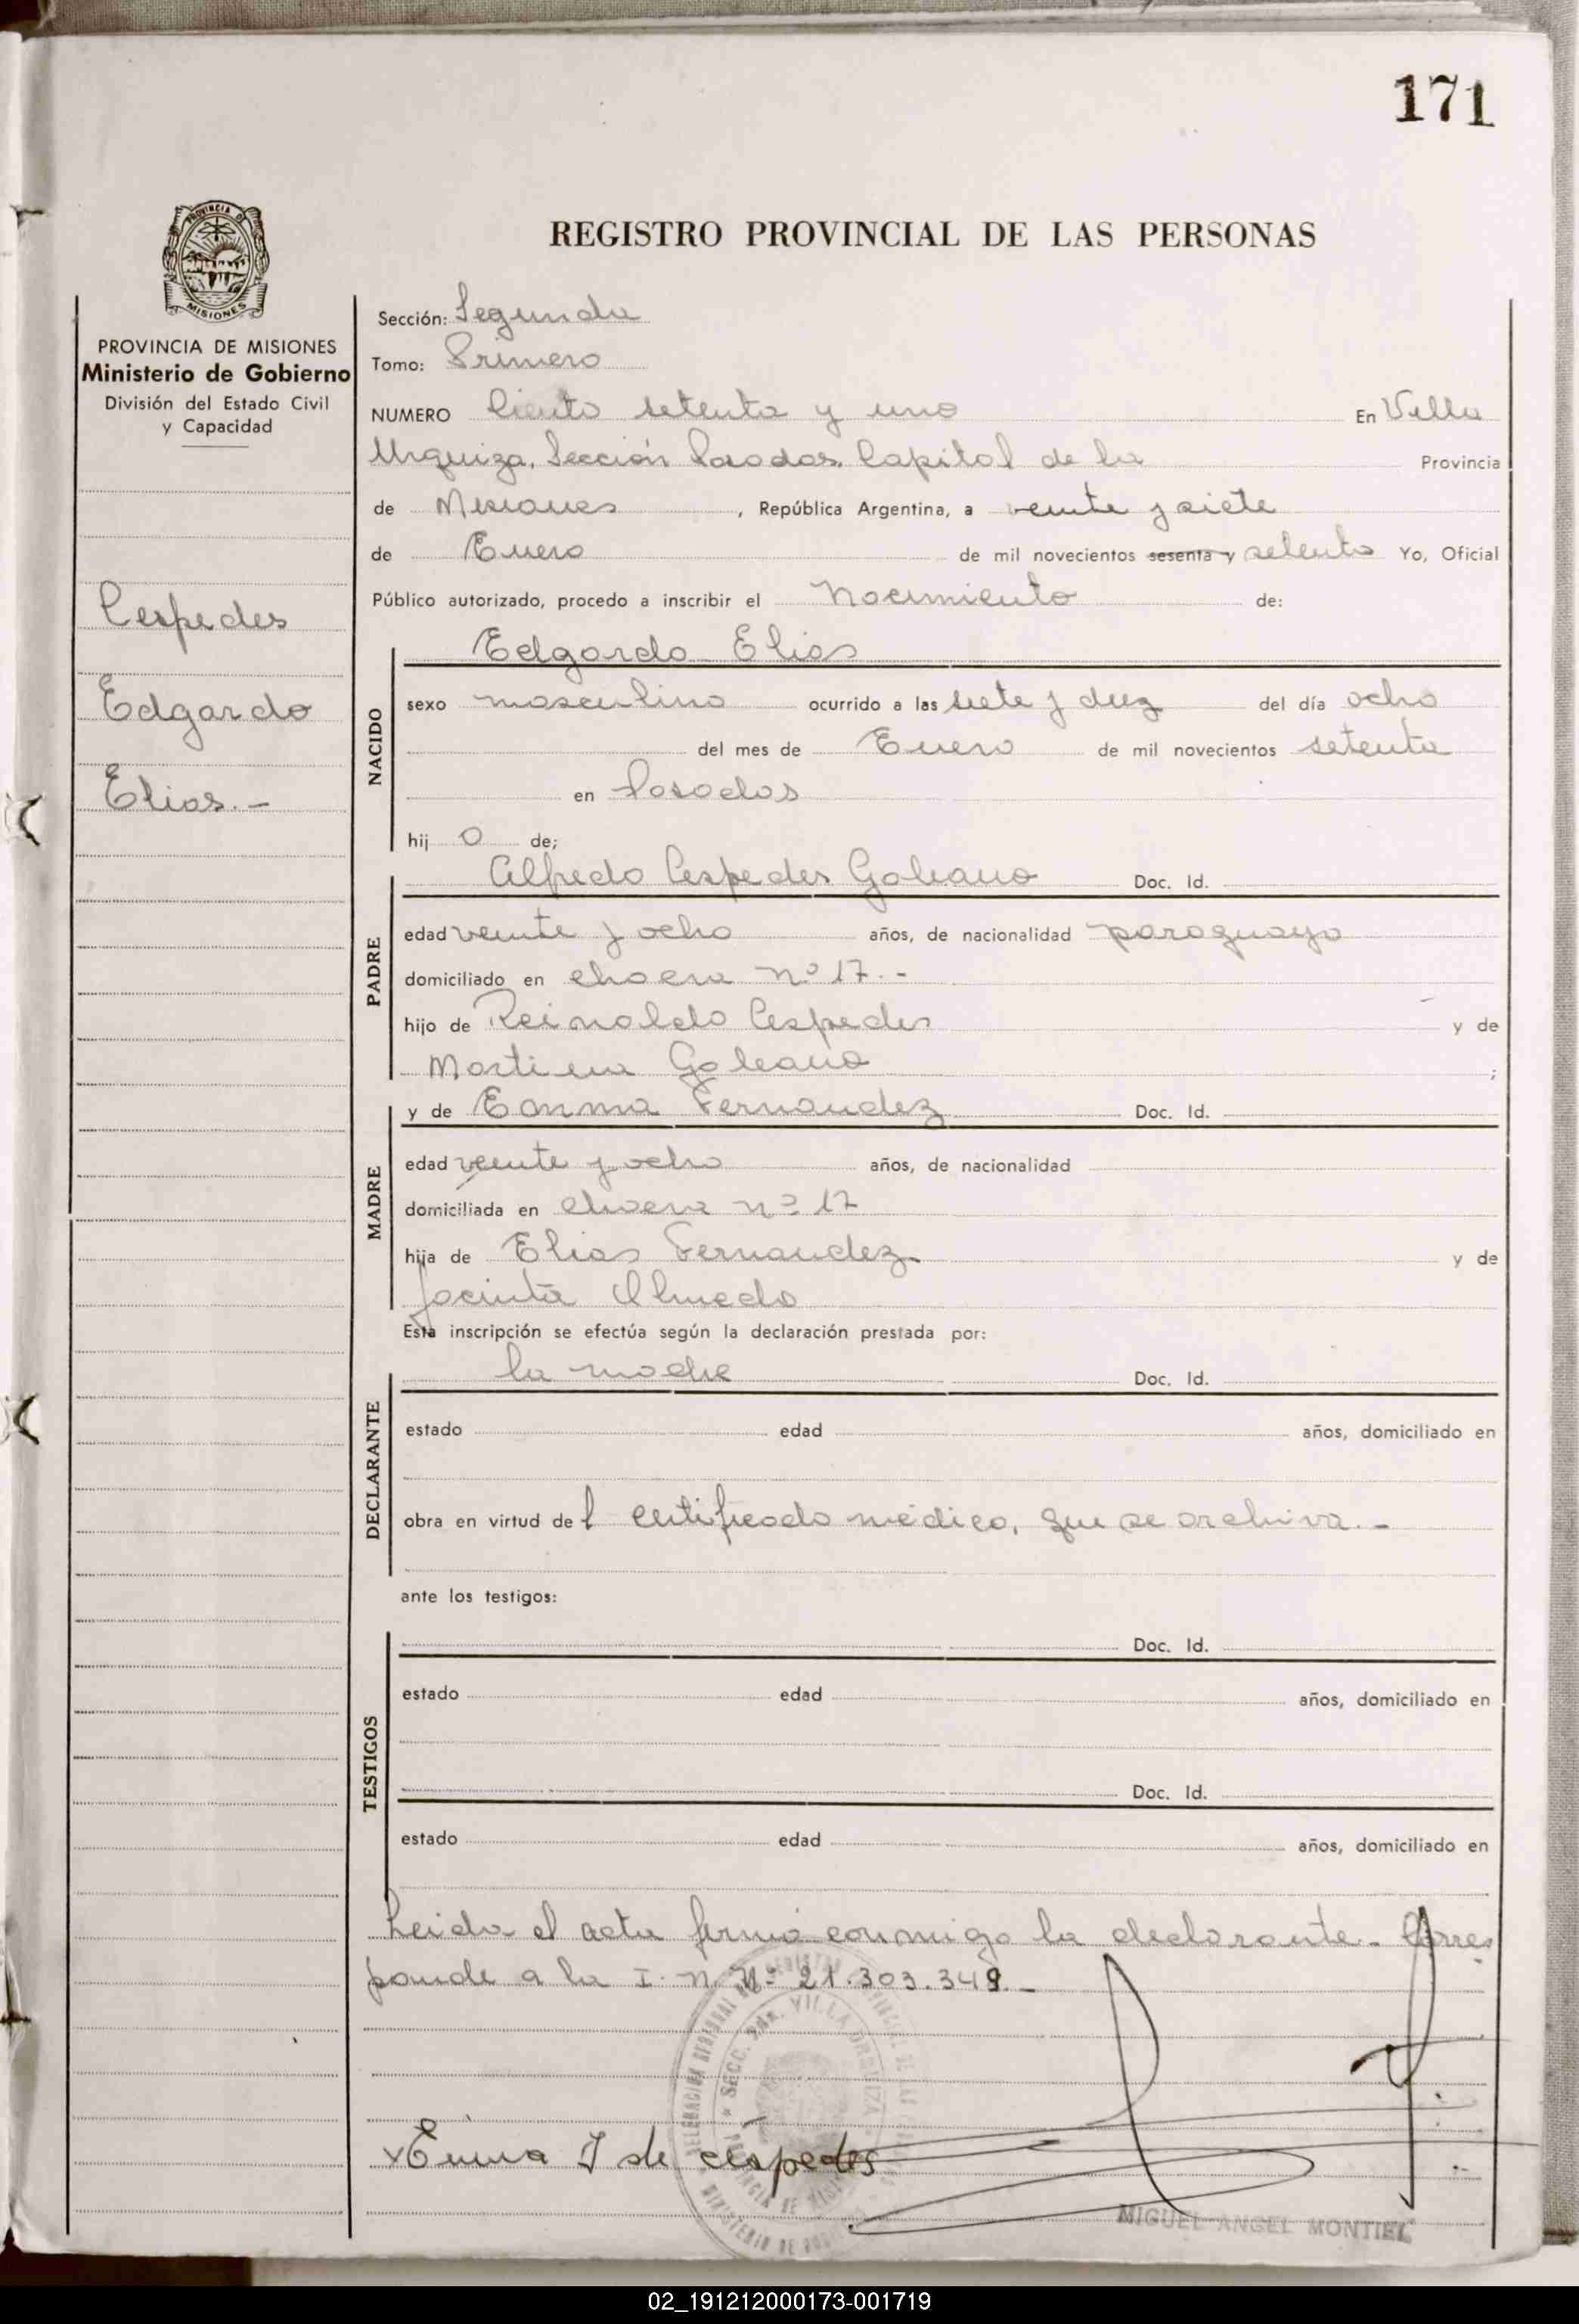 171
PROVINCIA DE
MISIONES
REGISTRO PROVINCIAL DE LAS PERSONAS
PROVINCIA DE MISIONES
Ministerio de Gobierno
División del Estado Civil
y Capacidad
Cespedes
Edgardo
Elias.-
Sección: Segunda
Tomo: Primero
NUMERO Ciento setenta y uno En Villa
Urquiza, Sección Posadas, Capital de la Provincia
de Misiones, República Argentina, a veinte y siete
de Enero de mil novecientos sesenta y setenta Yo, Oficial
Público autorizado, procedo a inscribir el Nacimiento de:
NACIDO
Edgardo Elias
sexo masculino ocurrido a las siete y diez del día ocho
del mes de Enero de mil novecientos setenta
en Posadas
hij o de;
PADRE
Alfredo Cespedes Galeano Doc. Id.
edad veinte y ocho años, de nacionalidad paraguayo
domiciliado en chacra nº 17.-
hijo de Reinaldo Cespedes y de
Martina Galeano ;
MADRE
y de Emma Fernandez Doc. Id.
edad veinte y ocho años, de nacionalidad
domiciliada en chacra nº 17
hija de Elias Fernandez y de
Jacinta Olmedo
Esta inscripción se efectúa según la declaración prestada por:
DECLARANTE
la madre Doc. Id.
estado edad años, domiciliado en
obra en virtud del certificado médico, que se archiva.-
ante los testigos:
TESTIGOS
Doc. Id.
estado edad años, domiciliado en
Doc. Id.
estado edad años, domiciliado en
Leida el acta firma conmigo la declarante.- Corres
ponde a la I. n. Nº 21.303.349.-
SECC. 2da. VILLA URQUIZA
x Emma F de cespedes
MIGUEL ANGEL MONTIEL
02_191212000173-001719